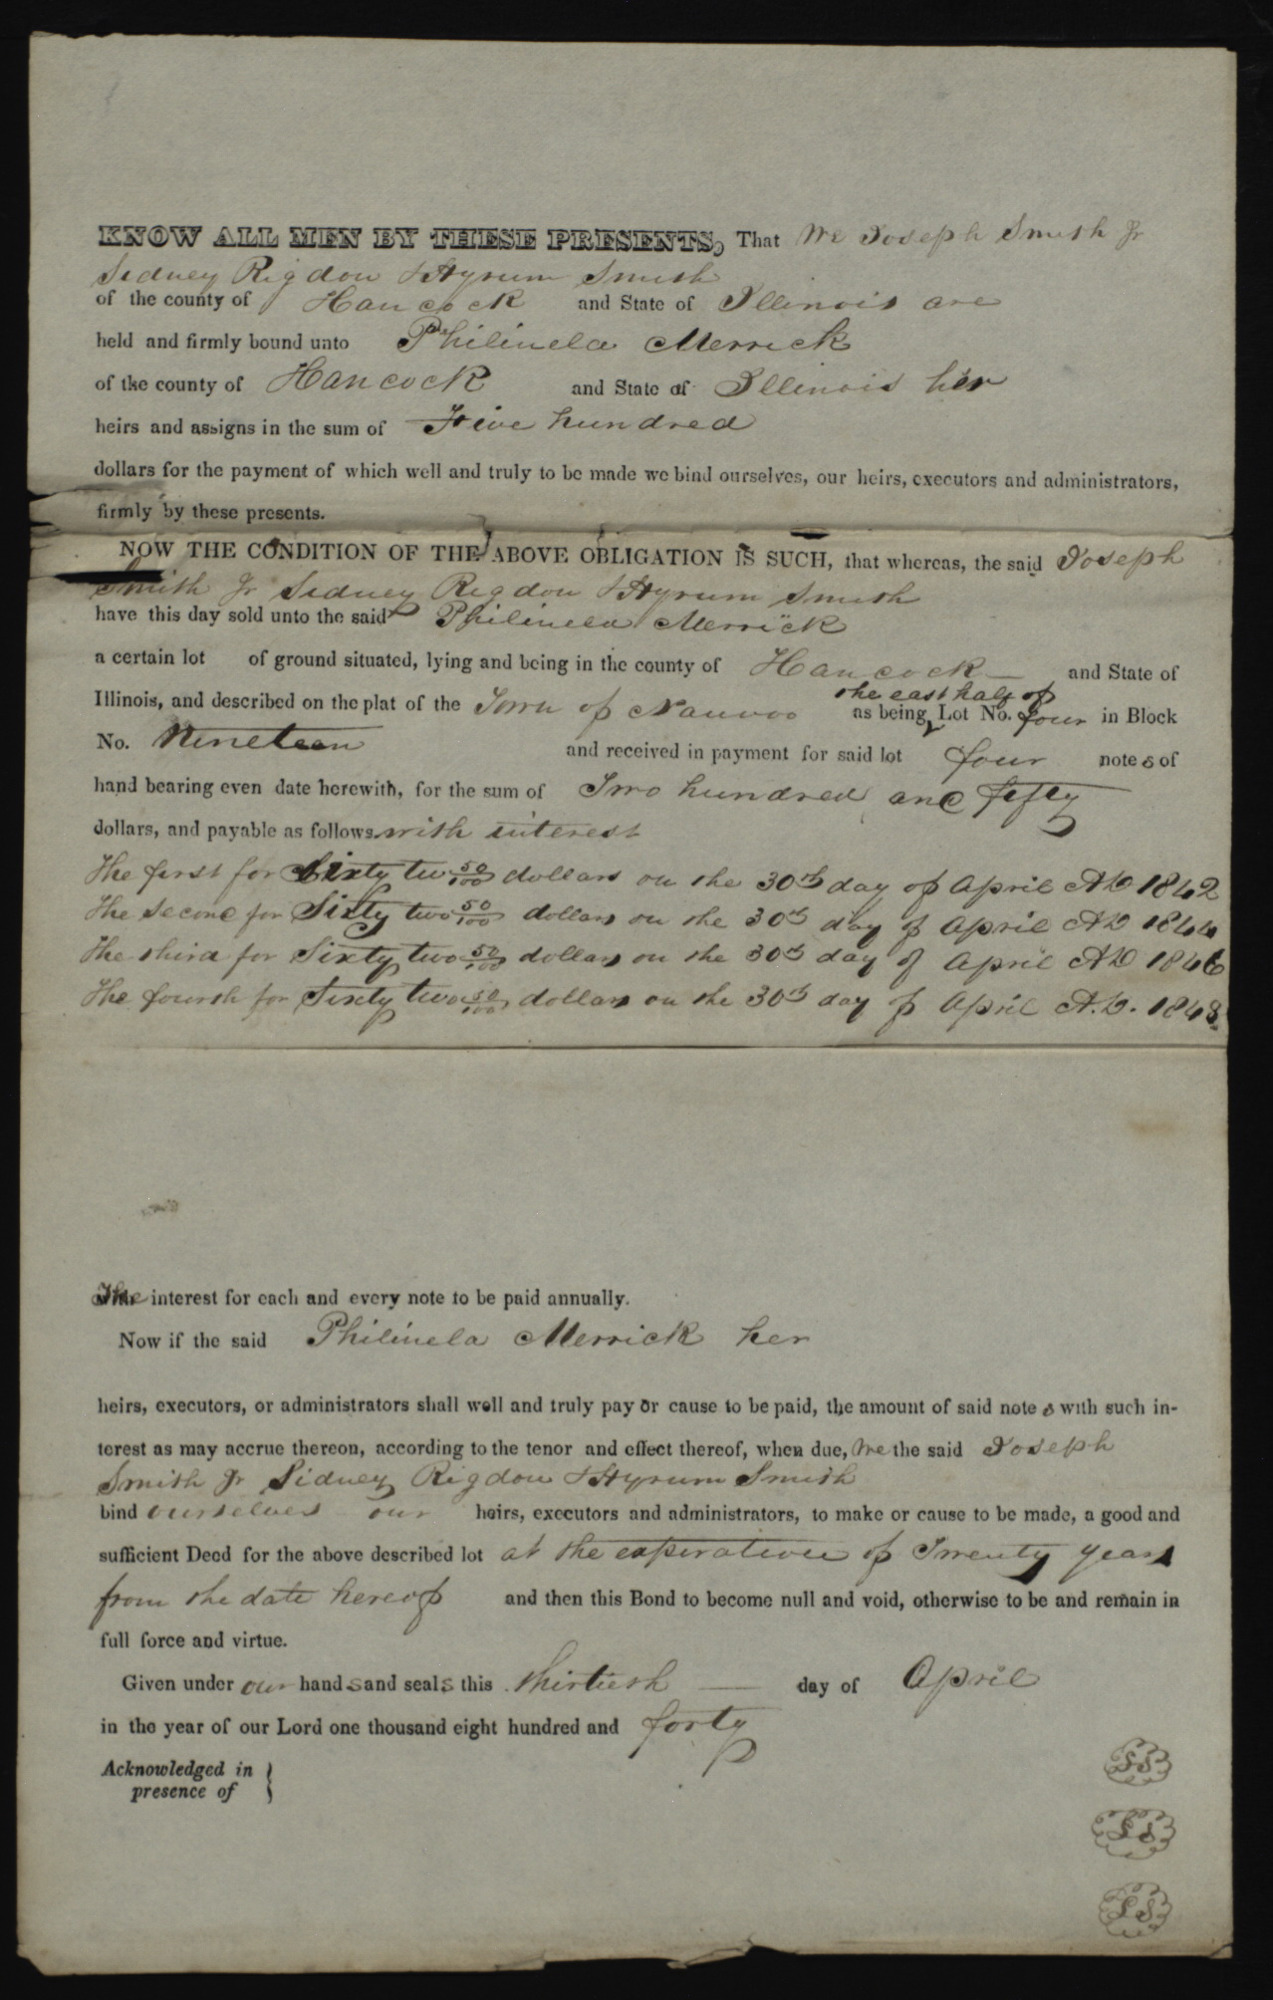 KNOW ALL MEN BY THESE PRESENTS, That We Joseph Smith Jr
Sidney Rigdon & Hyrum Smith
of the county of Hancock and State of Illinois are
held and firmly bound unto Philinela Merrick
of the county of Hancock and State of Illinois her
heirs and assigns in the sum of Five hundred
dollars for the payment of which well and truly to be made we bind ourselves, our heirs, executors and administrators,
firmly by these presents.
NOW THE CONDITION OF THE ABOVE OBLIGATION IS SUCH, that whereas, the said Joseph
Smith Jr Sidney Rigdon & Hyrum Smith
have this day sold unto the said Philinela Merrick
a certain lot of ground situated, lying and being in the county of Hancock and State of
the east half of
Illinois, and described on the plat of the Town of Nauvoo as being Lot No. four in Block
No. Nineteen and received in payment for said lot four notes of
hand bearing even date herewith, for the sum of Two hundred and fifty
dollars, and payable as follows with interest
The first for Sixty two 50/100 dollars on the 30th day of April AD 1842
The second for Sixty two 50/100 dollars on the 30th day of April AD 1844
The third for Sixty two 50/100 dollars on the 30th day of April AD 1846
The fourth for Sixty two 50/100 dollars on the 30th day of April A.D. 1848
The interest for each and every note to be paid annually.
Now if the said Philinela Merrick her
heirs, executors, or administrators shall well and truly pay or cause to be paid, the amount of said notes with such in-
terest as may accrue thereon, according to the tenor and effect thereof, when due, We the said Joseph
Smith Jr Sidney Rigdon & Hyrum Smith
bind ourselves our heirs, executors and administrators, to make or cause to be made, a good and
sufficient Deed for the above described lot at the experation of Twenty years
from the date hereof and then this Bond to become null and void, otherwise to be and remain in
full force and virtue.
Given under our hands and seals this thirtieth day of April
in the year of our Lord one thousand eight hundred and forty
Acknowledged in
presence of }
SS
LS
LS